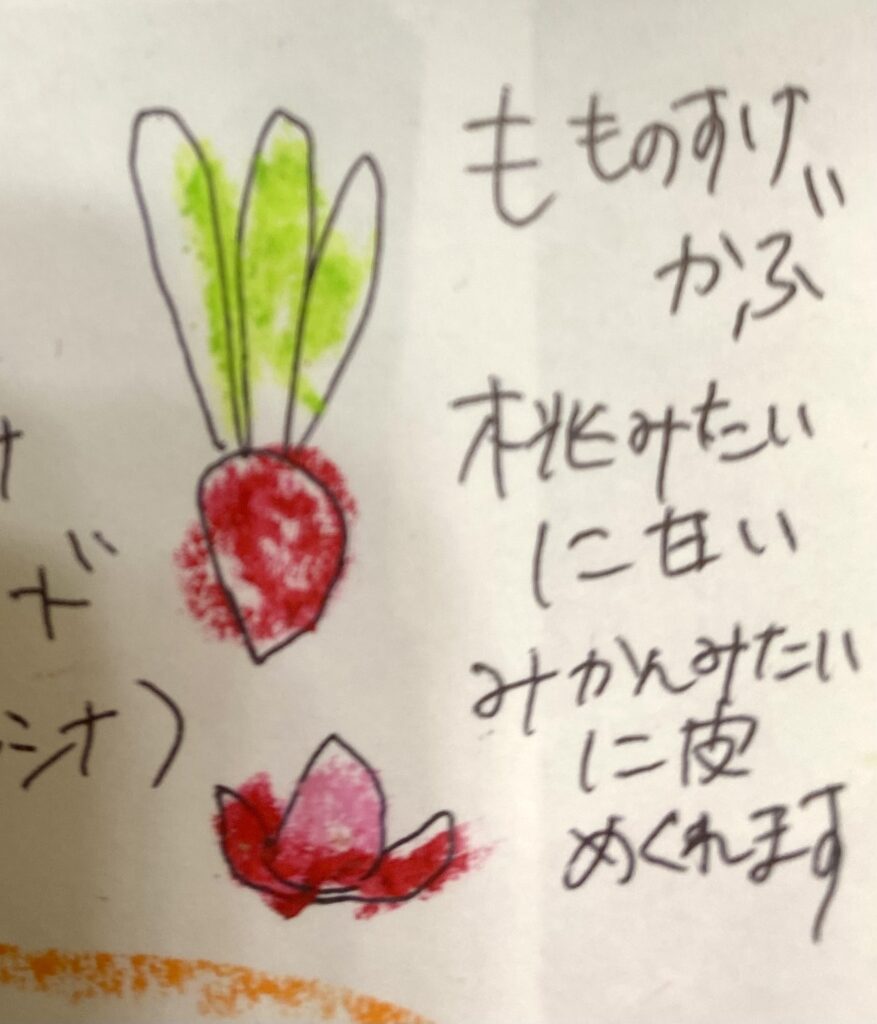 もものすけ
かぶ
桃みたい
に甘い
みかんみたい
に皮
めくれます